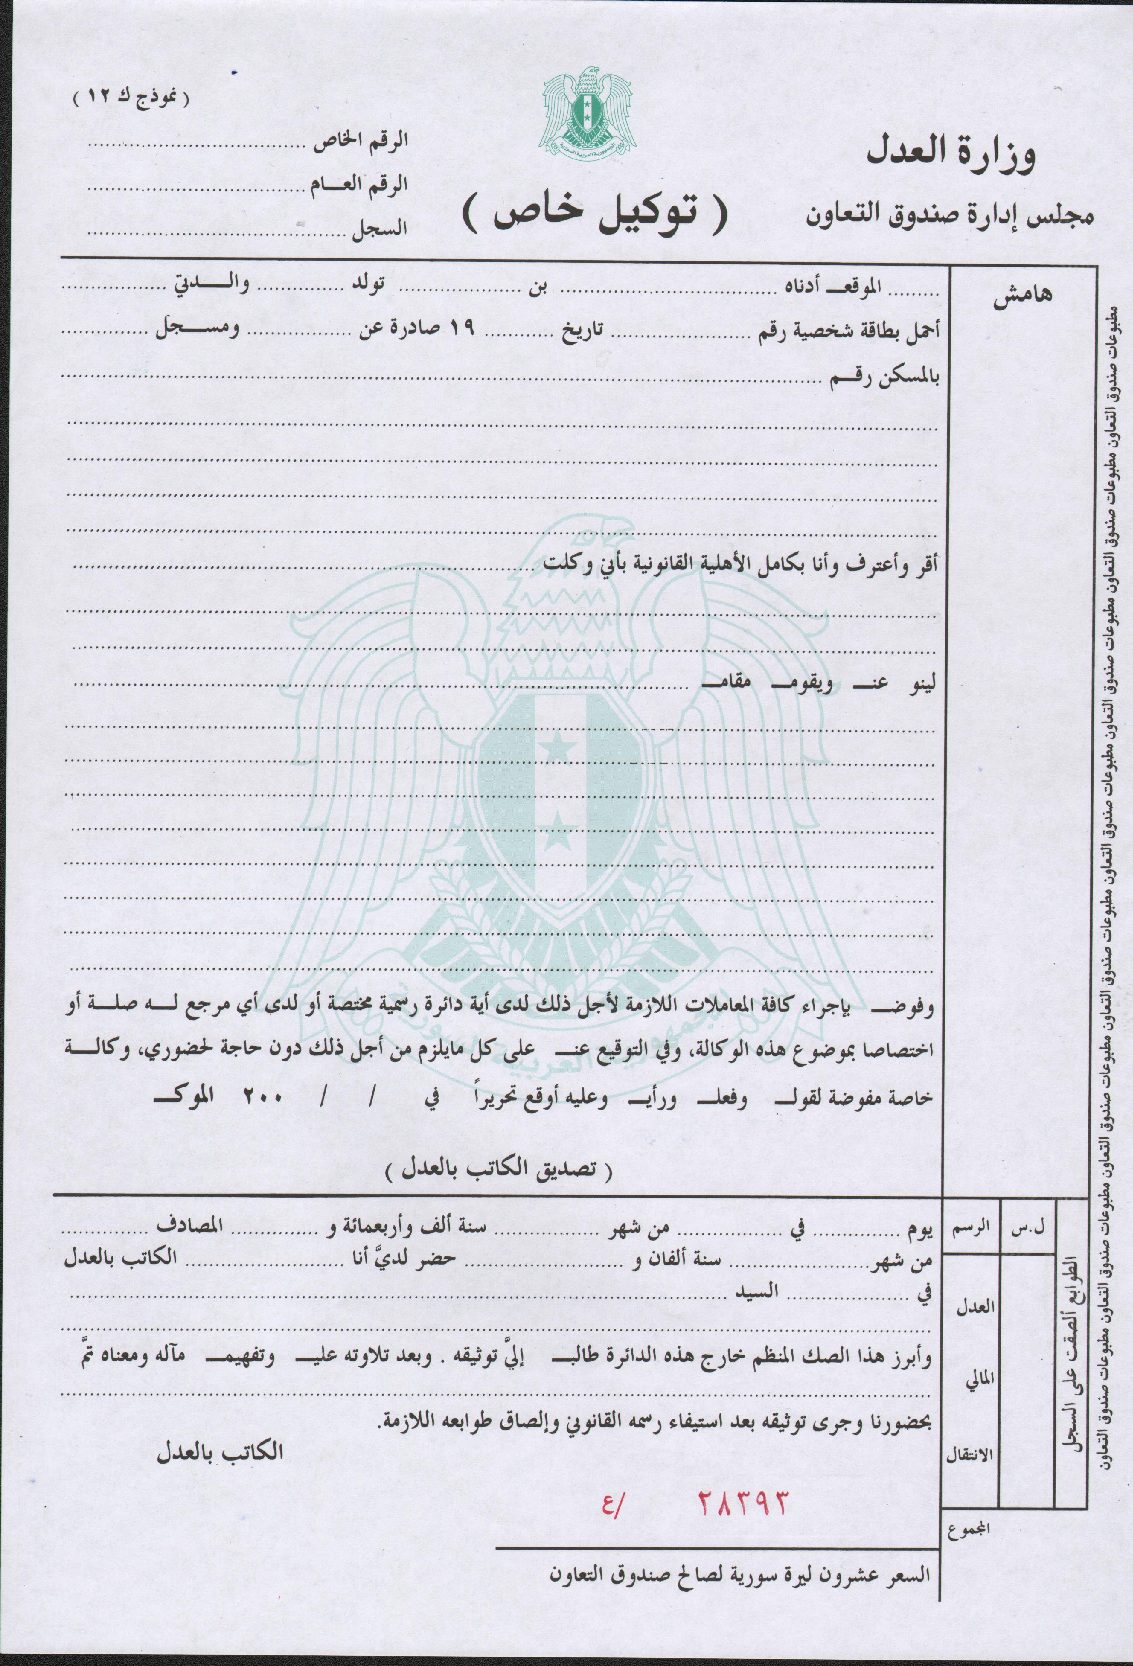 ( نموذج ك ١٢ )
وزارة العدل
مجلس إدارة صندوق التعاون
( توكيل خاص )
الرقم الخاص ..............
الرقم العــام ..............
السجل ..............
هامش
......... الموقعـ أدناه .............. بن .............. تولد .............. والــدتي ..............
أحمل بطاقة شخصية رقم .............. تاريخ ........... ١٩ صادرة عن .............. ومســجل ..............
بالمسكن رقــم ..............
أقر وأعترف وأنا بكامل الأهلية القانونية بأني وكلت ..............
لينو عنـ ويقومـ مقامـ ..............
وفوضـ بإجراء كافة المعاملات اللازمة لأجل ذلك لدى أية دائرة رسمية مختصة أو لدى أي مرجع لــه صلــة أو
اختصاصا بموضوع هذه الوكالة، وفي التوقيع عنـ على كل مايلزم من أجل ذلك دون حاجة لحضوري، وكالــة
خاصة مفوضة لقولـ وفعلـ ورأيـ وعليه أوقع تحريراً في / / ٢٠٠ الموكـ
( تصديق الكاتب بالعدل )
يوم .............. في .............. من شهر .............. سنة ألف وأربعمائة و .............. المصادف ..............
من شهر .............. سنة ألفان و .............. حضر لديَّ أنا .............. الكاتب بالعدل
في .............. السيد ..............
وأبرز هذا الصك المنظم خارج هذه الدائرة طالبـ إليَّ توثيقه . وبعد تلاوته عليـ وتفهيمـ مآله ومعناه تمَّ
بحضورنا وجرى توثيقه بعد استيفاء رسمه القانوني وإلصاق طوابعه اللازمة.
الكاتب بالعدل
٢٨٣٩٣ /ع
السعر عشرون ليرة سورية لصالح صندوق التعاون
الرسم ل.س
العدل
المالي
الانتقال
المجموع
الطوابع ألصقت على السجل
مطبوعات صندوق التعاون مطبوعات صندوق التعاون مطبوعات صندوق التعاون مطبوعات صندوق التعاون مطبوعات صندوق التعاون مطبوعات صندوق التعاون مطبوعات صندوق التعاون مطبوعات صندوق التعاون